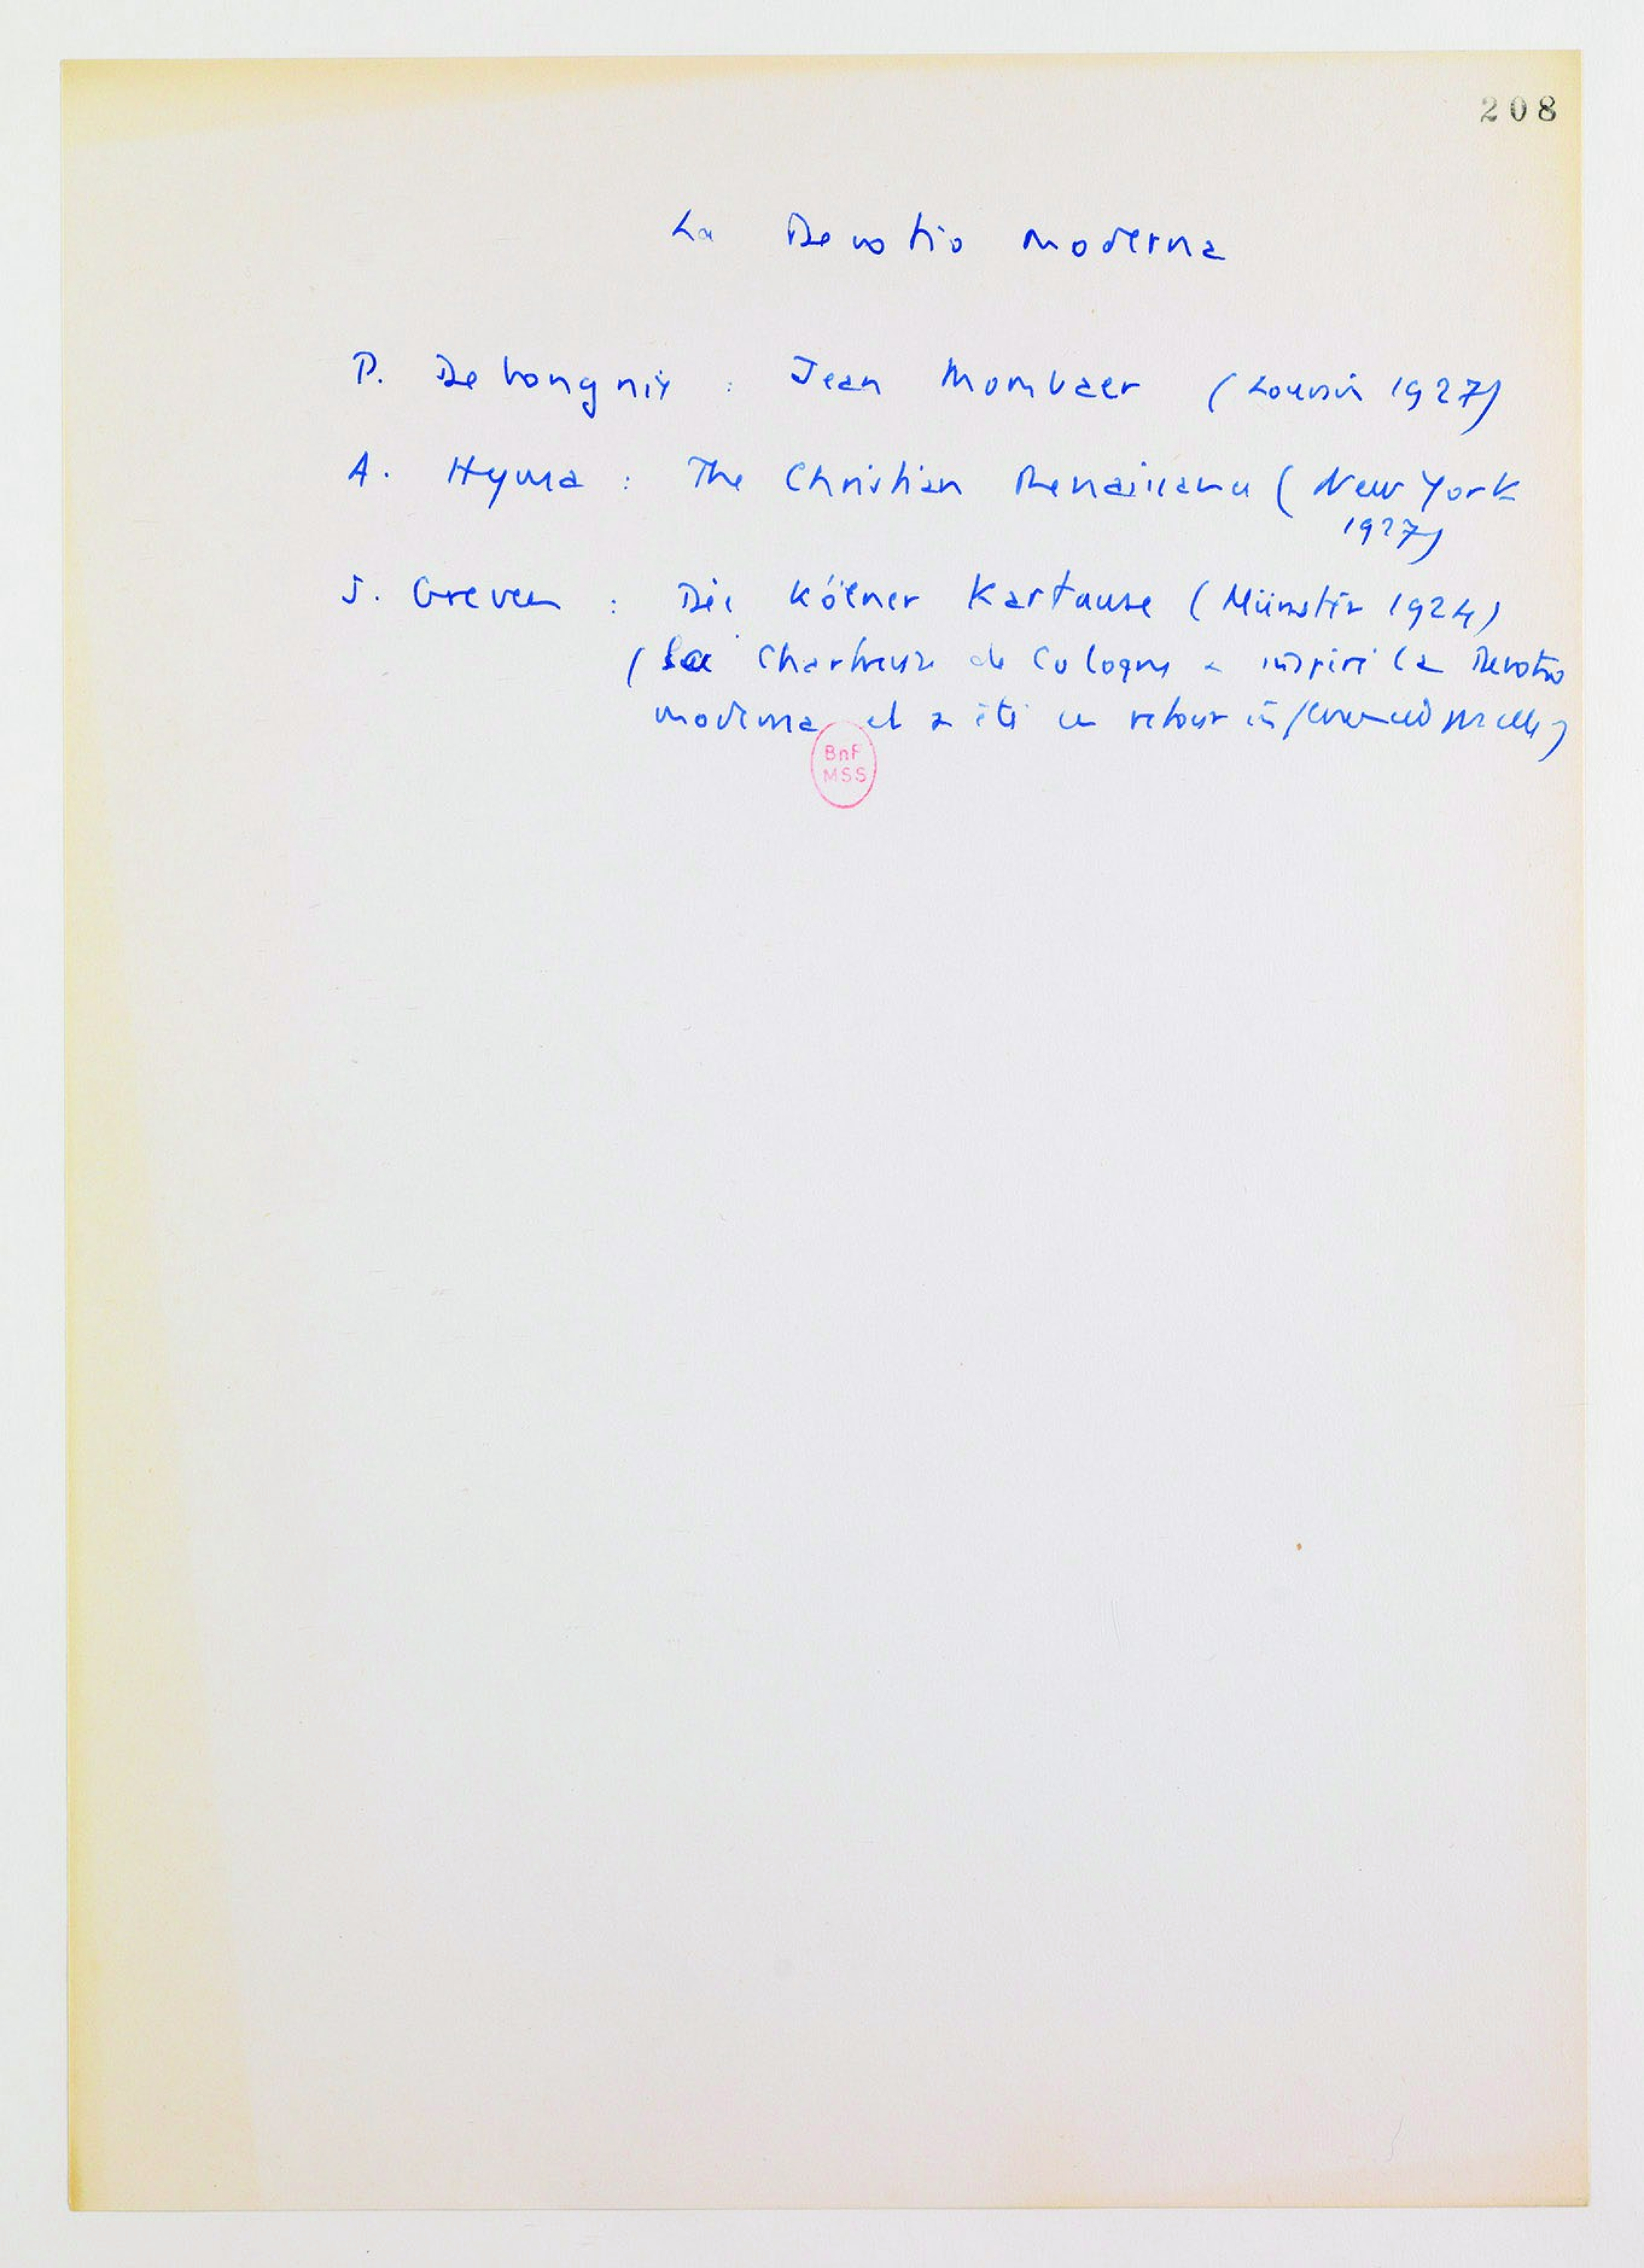 208
La Devotio moderna
P. Debongnie : Jean Mombaer (Louvain 1927)
A. Hyma : The Christian Renaissance (New York
1927)
J. Greven : Die Kölner Kartause (Münster 1924)
(La Chartreuse de Cologne a inspiré la Devotio
moderna et a été en retour influencée par elle)
BnF
MSS